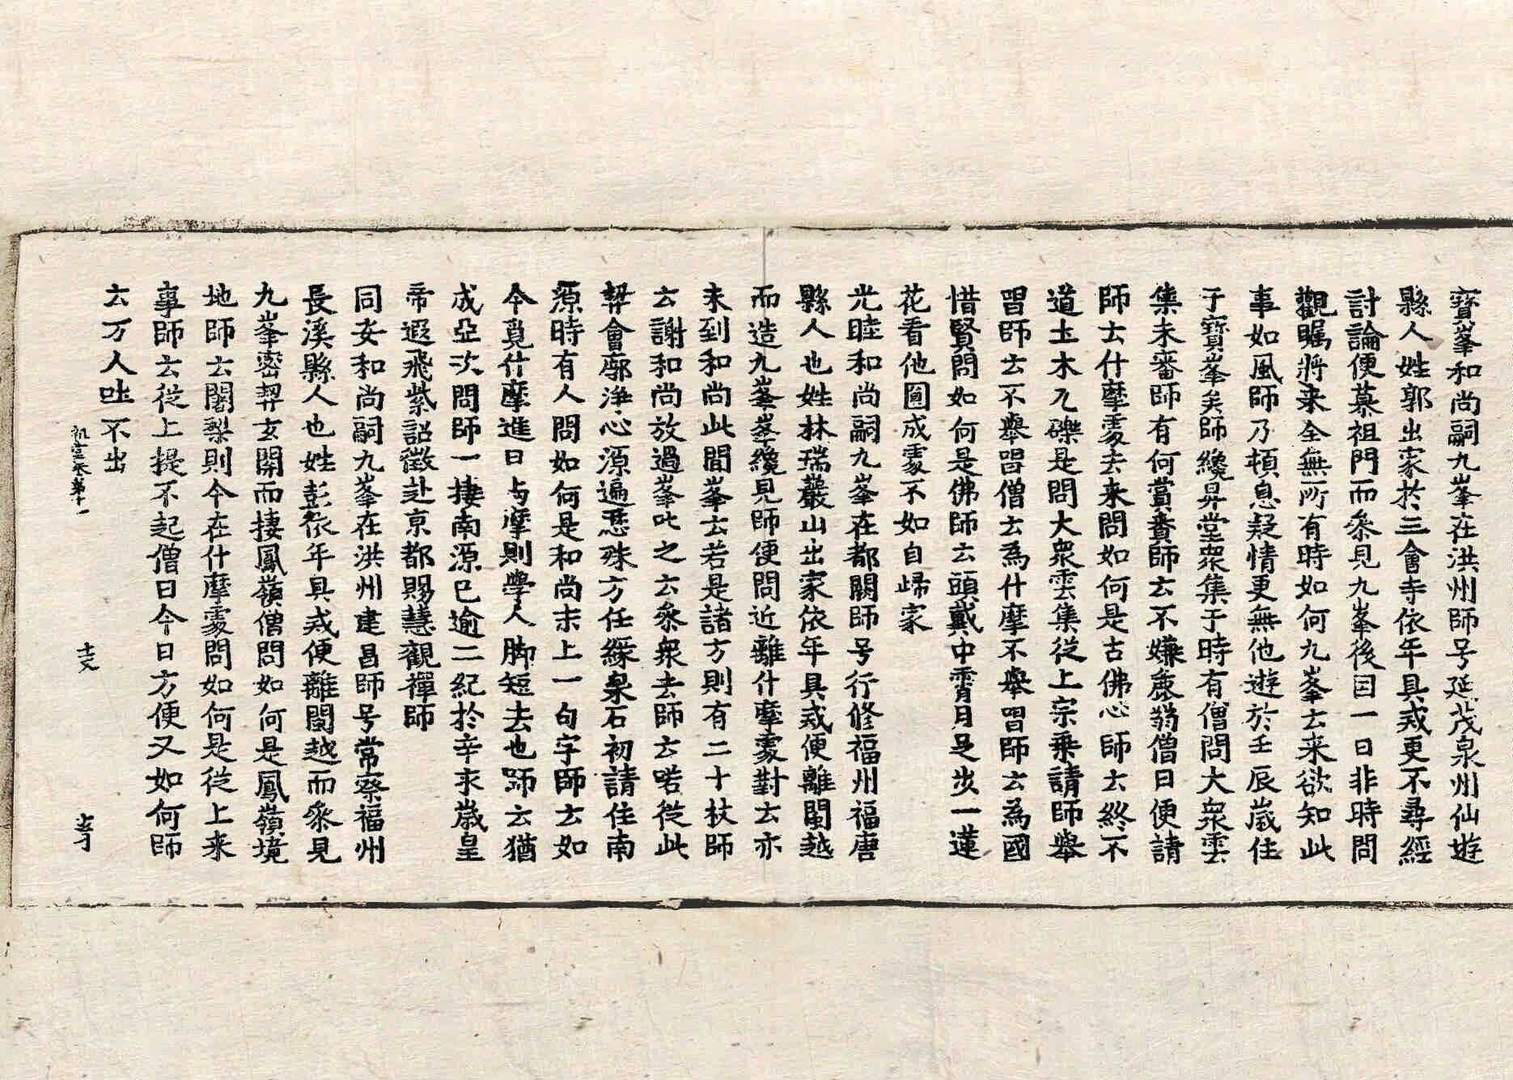 寶峯和尚嗣九峯在洪州師号延茂泉州仙遊
縣人姓郭出家於三會寺依年具戒更不尋經
討論便慕祖門而叅見九峯後因一日非時問
觀瞩將来全無所有時如何九峯云来欲知此
事如風師乃頓息疑情更無他遊於壬辰歲住
于寶峯矣師纔昇堂衆集于時有僧問大衆雲
集未審師有何賞賚師云不嫌麁㔟僧曰便請
師云什摩處去来問如何是古佛心師云終不
道土木瓦礫是問大衆雲集從上宗乘請師舉
唱師云不舉唱僧云為什摩不舉唱師云為國
惜賢問如何是佛師云頭戴中霄月足步一蓮
花看他圓成處不如自歸家
光睦和尚嗣九峯在都闕師号行修福州福唐
縣人也姓林瑞巖山出家依年具戒便離閩越
而造九峯峯纔見師便問近離什摩處對云亦
未到和尚此間峯云若是諸方則有二十杖師
云謝和尚放過峯叱之云叅衆去師云喏從此
契會廓淨心源遍歷殊方任緣泉石初請住南
源時有人問如何是和尚末上一句字師云如
今覓什摩進曰与摩則學人脚短去也師云猶
成亞次問師一捿南源已逾二紀於辛未歲皇
帝遐飛紫詔徵赴京都賜慧觀禪師
同安和尚嗣九峯在洪州建昌師号常察福州
長溪縣人也姓彭依年具戒便離閩越而叅見
九峯密契玄關而捿鳳嶺僧問如何是鳳嶺境
地師云闍梨則今在什摩處問如何是從上来
事師云從上提不起僧曰今日方便又如何師
云万人吐不出
祖堂卷第十一